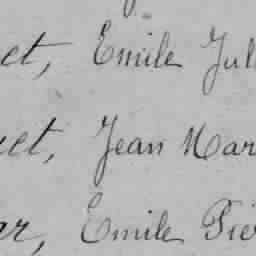 et, Emile Jul
uet, Jean Mar
ar, Emile Pie